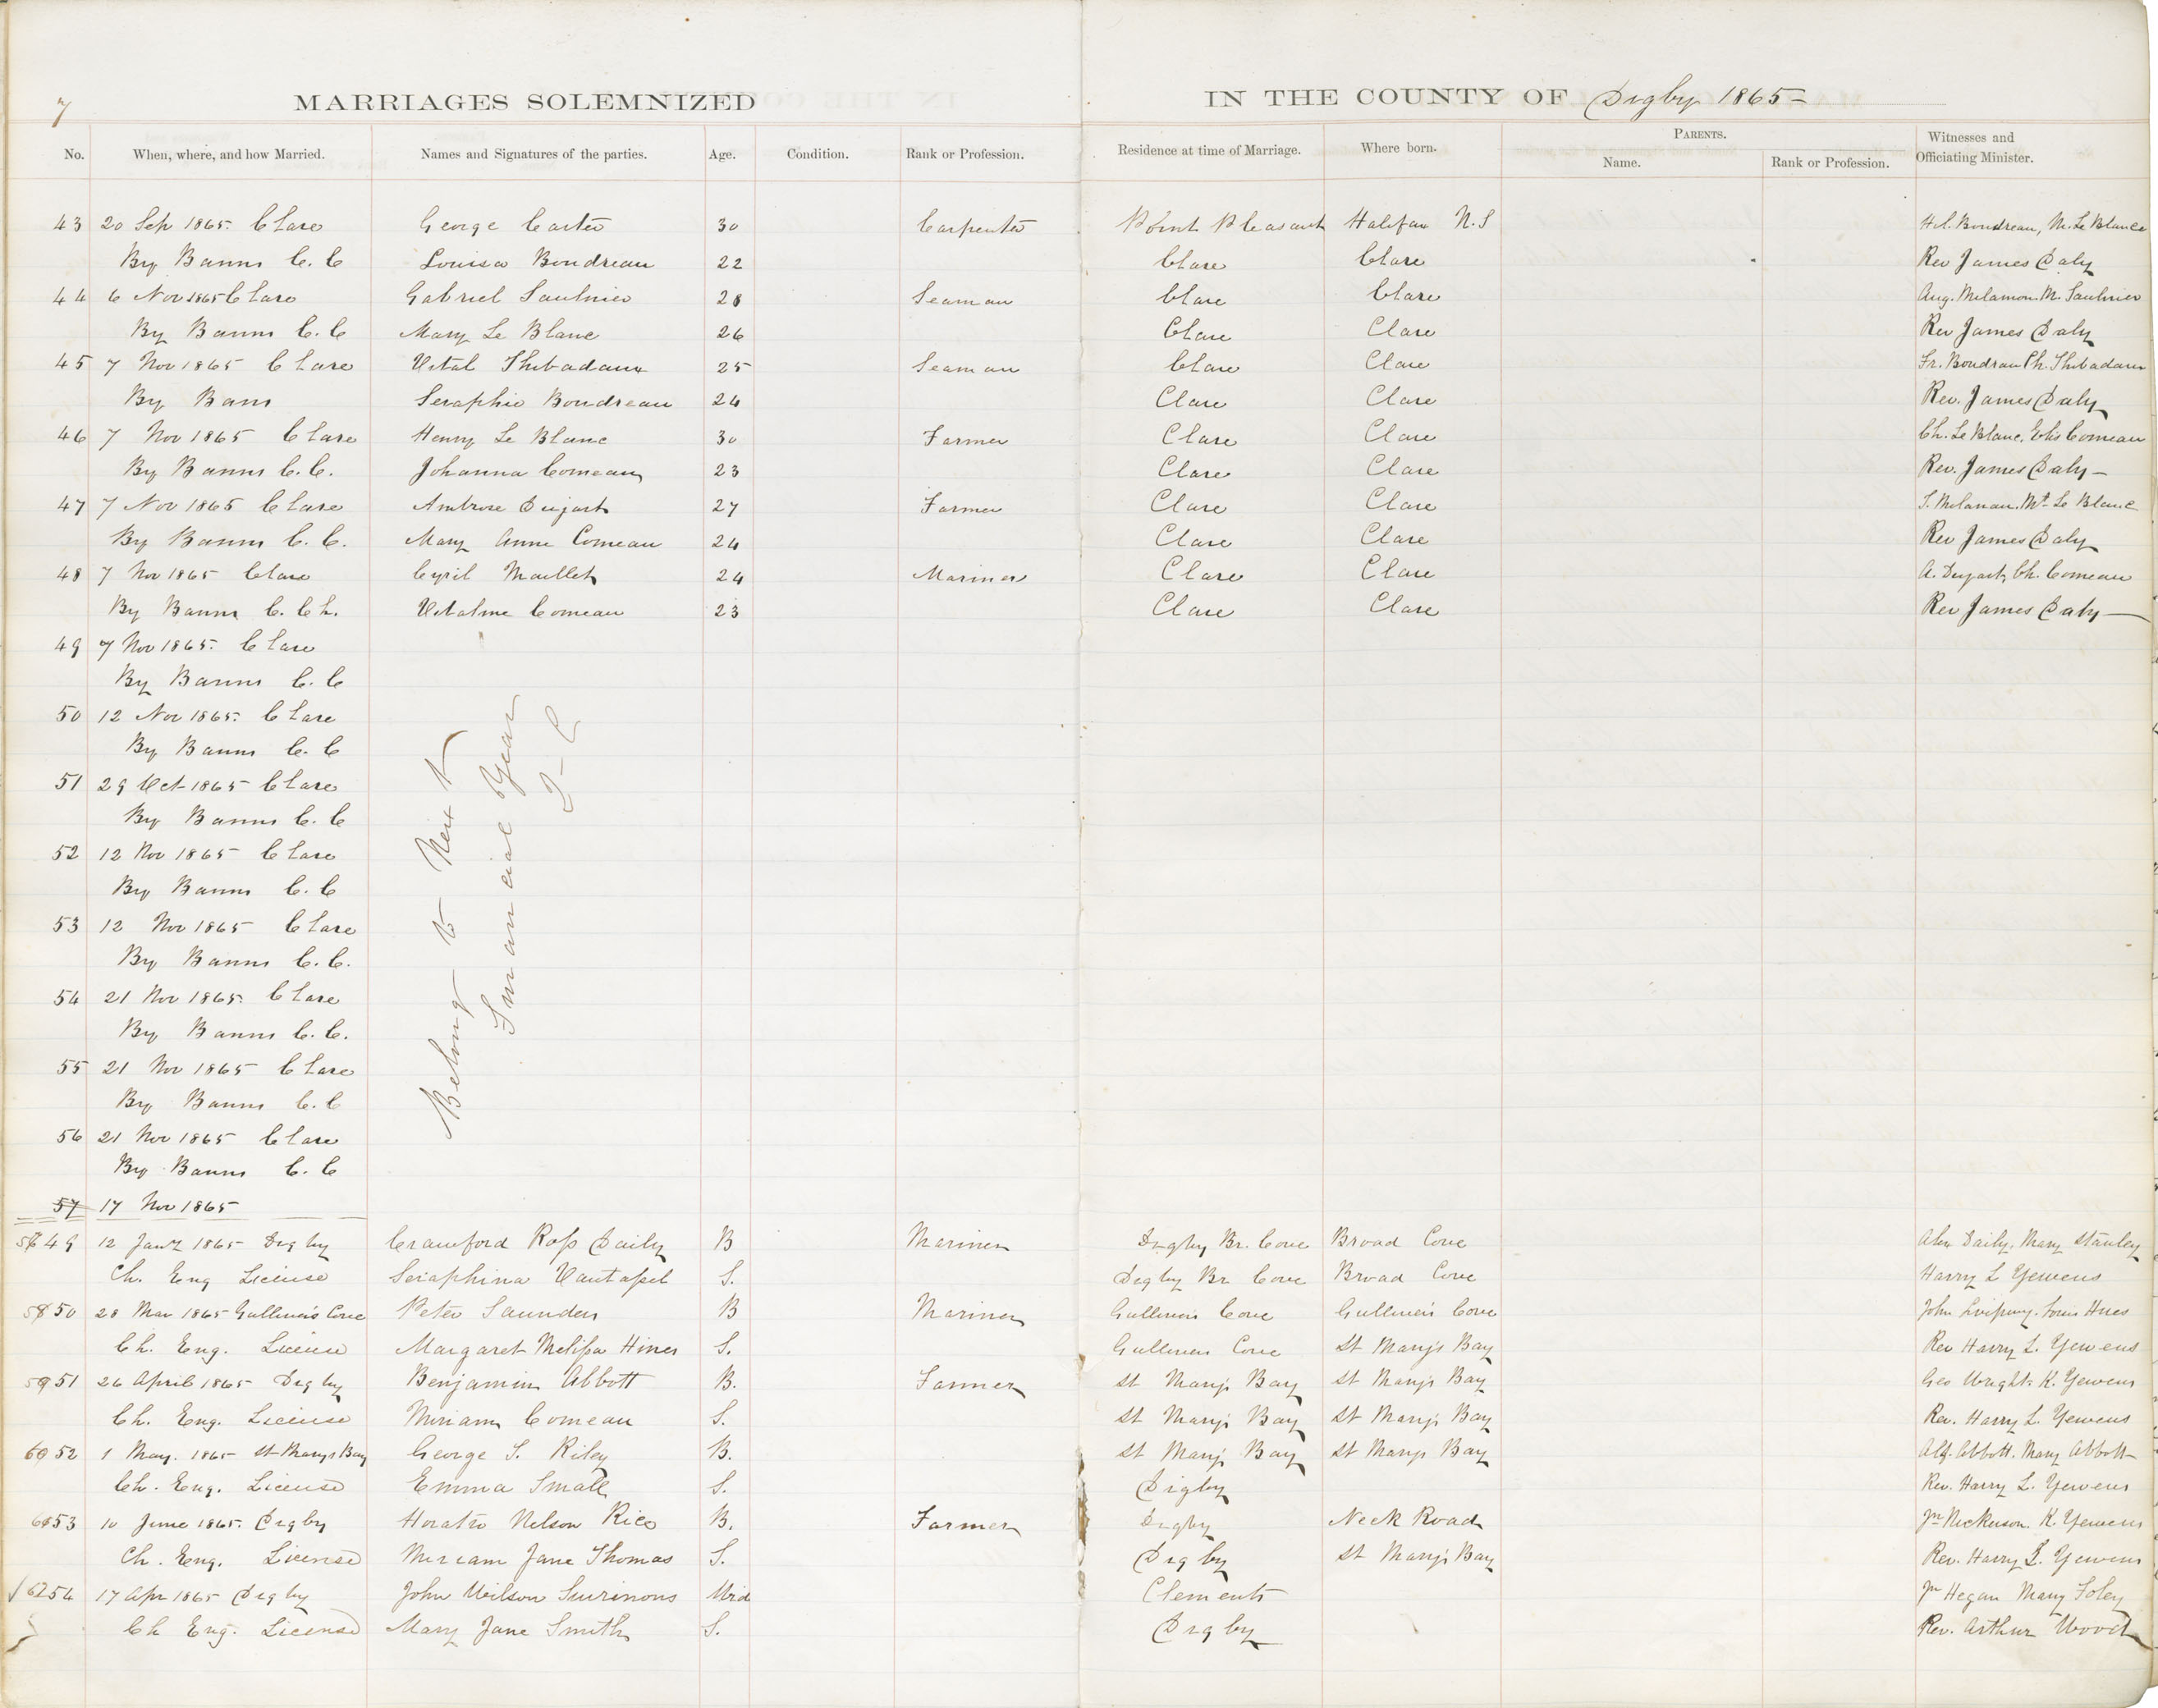 7
MARRIAGES SOLEMNIZED IN THE COUNTY OF Digby 1865-
No. When, where, and how Married. Names and Signatures of the parties. Age. Condition. Rank or Profession. Residence at time of Marriage. Where born. PARENTS. Name. Rank or Profession. Witnesses and Officiating Minister.
43 20 Sep 1865. Clare George Carter 30 Carpenter Point Pleasant Halifax N.S Hil. Boudreau, M. Le Blance
By Banns C. C Louisa Boudreau 22 Clare Clare Rev James Daly
44 6 Nov 1865 Clare Gabriel Saulnier 28 Seaman Clare Clare Aug. Melamon. M. Saulnier
By Banns C. C Mary Le Blanc 26 Clare Clare Rev James Daly
45 7 Nov 1865 Clare Vital Thibadaux 25 Seaman Clare Clare Fr. Boudrau Ch. Thibadaux
By Bans Seraphie Boudreau 24 Clare Clare Rev. James Daly
46 7 Nov 1865 Clare Henry Le Blanc 30 Farmer Clare Clare Ch. Le Blanc, Comeau
By Banns C. C. Johanna Comeau 23 Clare Clare Rev. James Daly -
47 7 Nov 1865 Clare Ambrose Dujart 27 Farmer Clare Clare S. Melanau. Mt Le Blanc
By Banns C. C. Mary Anne Comeau 24 Clare Clare Rev James Daly
48 7 Nov 1865 Clare Cyril Maillet 24 Mariner Clare Clare A. Dujart, Ch. Comeau
By Banns C. Ch. Vitaline Comeau 23 Clare Clare Rev James Daly
49 7 Nov 1865. Clare
By Banns C. C
50 12 Nov 1865. Clare
By Banns C. C
51 29 Oct 1865 Clare
By Banns C. C
52 12 Nov 1865 Clare
By Banns C. C
53 12 Nov 1865 Clare
By Banns C. C.
54 21 Nov 1865. Clare
By Banns C. C.
55 21 Nov 1865 Clare
By Banns C. C
56 21 Nov 1865 Clare
By Banns C. C
Belong to Next
Financial Year
57 17 Nov 1865
49 12 Jany 1865 Digby Crawford Ross Daily B Mariner Digby Br. Cove Broad Cove Alex Daily, Mary Stanley
Ch. Eng License Seraphina Vantassel S. Digby Br Cove Broad Cove Harry L Yewens
58 50 28 Mar 1865 Gulliver's Cove Peter Saunders B Mariner Gulliver's Cove Gulliver's Cove John
Ch. Eng. License Margaret Melissa Hines S. Gullivers Cove St Mary's Bay Rev Harry L. Yewens
59 51 26 April 1865 Digby Benjamin Abbott B. Farmer St Mary's Bay St Mary's Bay Geo Wright. K. Yewens
Ch. Eng. License Miriam Comeau S. St Mary's Bay St Mary's Bay Rev. Harry L. Yewens
60 52 1 May. 1865 St Marys Bay George S. Riley B. St Mary's Bay St Marys Bay Alf. Abbott. Mary Abbott
Ch. Eng. License Emma Small S. Digby Rev. Harry L. Yewens
61 53 10 June 1865. Digby Horatio Nelson Rice B. Farmer Digby Neck Road Jno Nickerson. K. Yewens
Ch. Eng. License Miriam Jane Thomas S. Digby St Mary's Bay Rev. Harry L. Yewens
62 54 17 Apr 1865 Digby John Wilson Wid Clements Jno Hegan Mary Foley
Ch Eng. License Mary Jane Smith S. Digby Rev. Arthur Wood